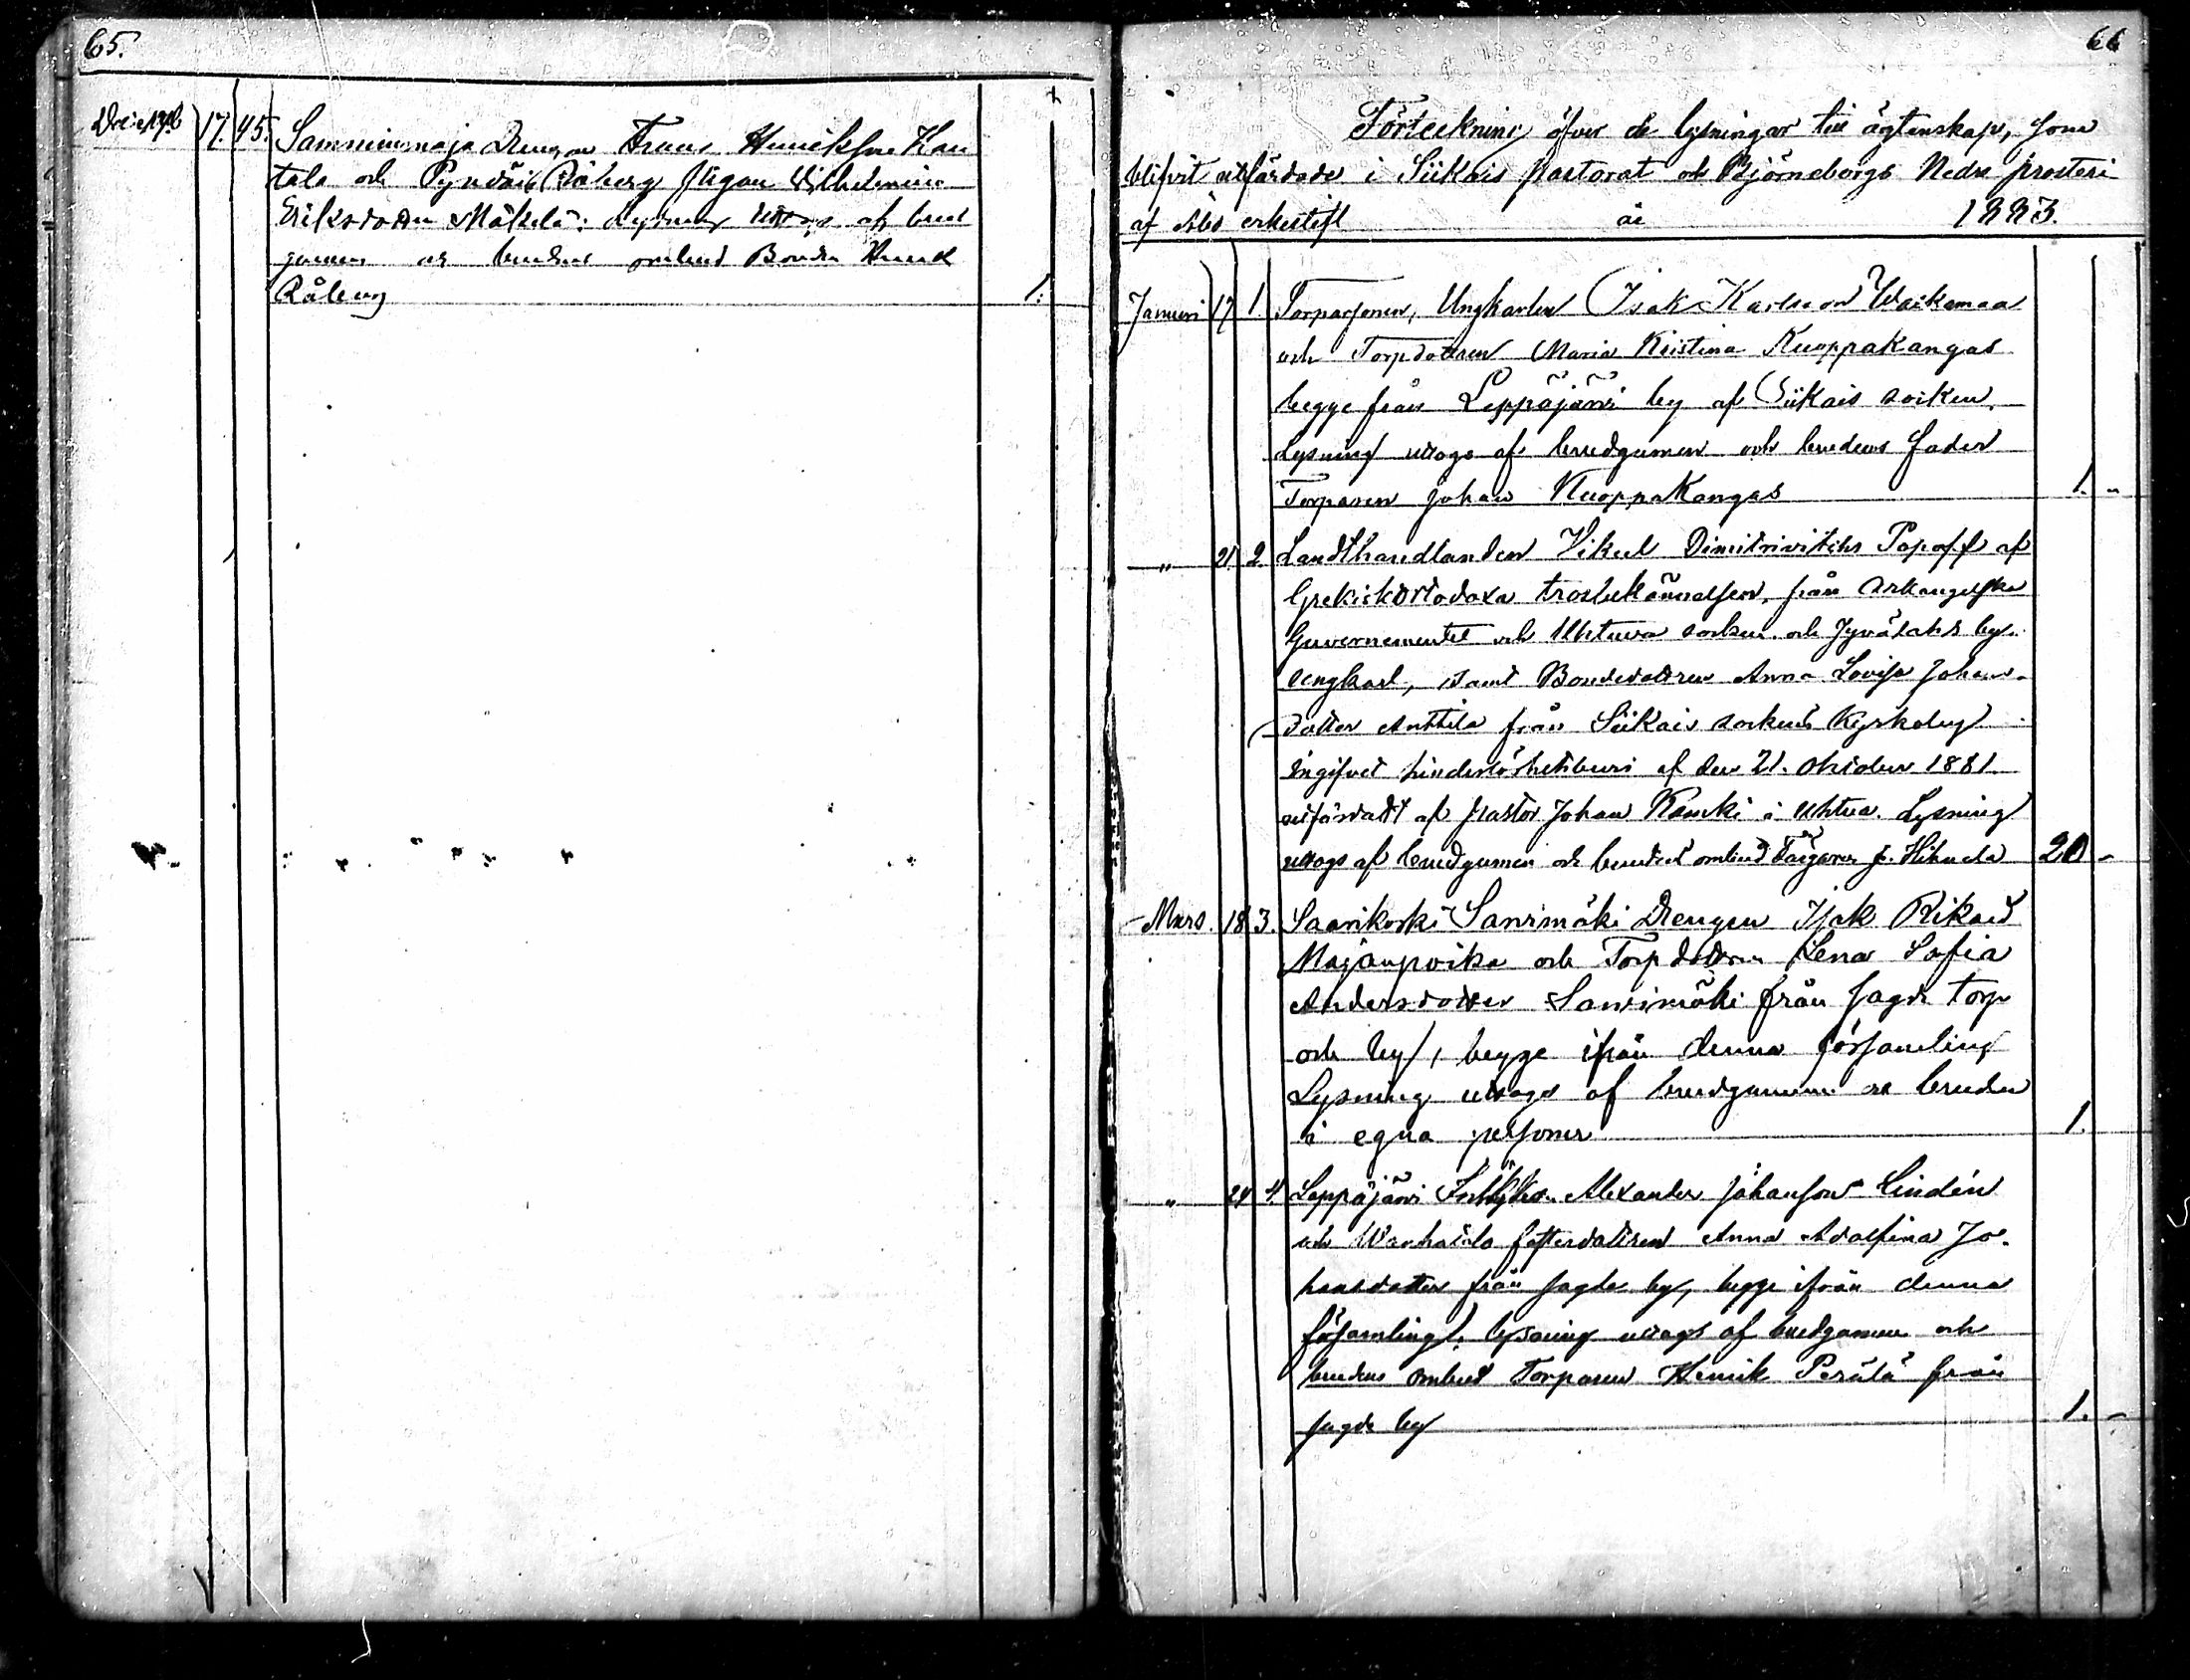 65.
Decemb 17. 45. Samminmaja Drengen Frans Henriksson Kan
tala och Råberg pigan Vilhelmina
Eriksdotter Mäkelä: Lysning uttogs af brud
gummen och brudens ombud Bonden Henrik
Råberg 1.
66
Förteckning öfver de lysningar till ägtenskap, som
blifvit utfärdade i Siikais pastorat och Björneborgs Nedre prosteri
af Åbo erkestift år 1883.
Januari 17 1. Torparsonen, Ungkarlen Isak Karlsson Waikemaa
och Torpdottren Maria Kristina Kuoppakangas
begge från Leppäjärvi by af Siikais socken.
Lysning uttogs af brudgummen och brudens fader
Torparen Johan Kuoppakangas 1. -
" 21. 2. Landthandlanden Dimitrivitch Popoff af
Grekiskortodoxa trosbekännelsen, från Arkangelska
Guvernementet och Uhtuva socken och Jyvälahs by.
ungkarl, samt Bondedottren Anna Lovisa Johans-
dotter Anttila från Siikais sockens Kyrkoby
ingifvet hinderlöshetsbevis af den 21. Oktober 1881.
utfärdadt af pastor Johan i Uhtua. Lysning
uttogs af brudgummen och brudens ombud 20 -
Mars. 18 3. Saarikoski Sanrimäki Drengen Isak Rikard
Majanpoika och Torpdottren Lena Sofia
Andersdotter Sanrimäki från sagde torp
och by, begge ifrån denna församling
Lysning uttogs af brudgummen och bruden
i egna personer 1.
" 24 4. Leppäjärvi Alexander Johansson Lindén
och fosterdottren Anna Adolfina Jo-
hansdotter från sagde by, begge ifrån denna
församling, lysning uttogs af brudgummen och
brudens ombud Torparen Henrik Perälä från
sagde by 1. -